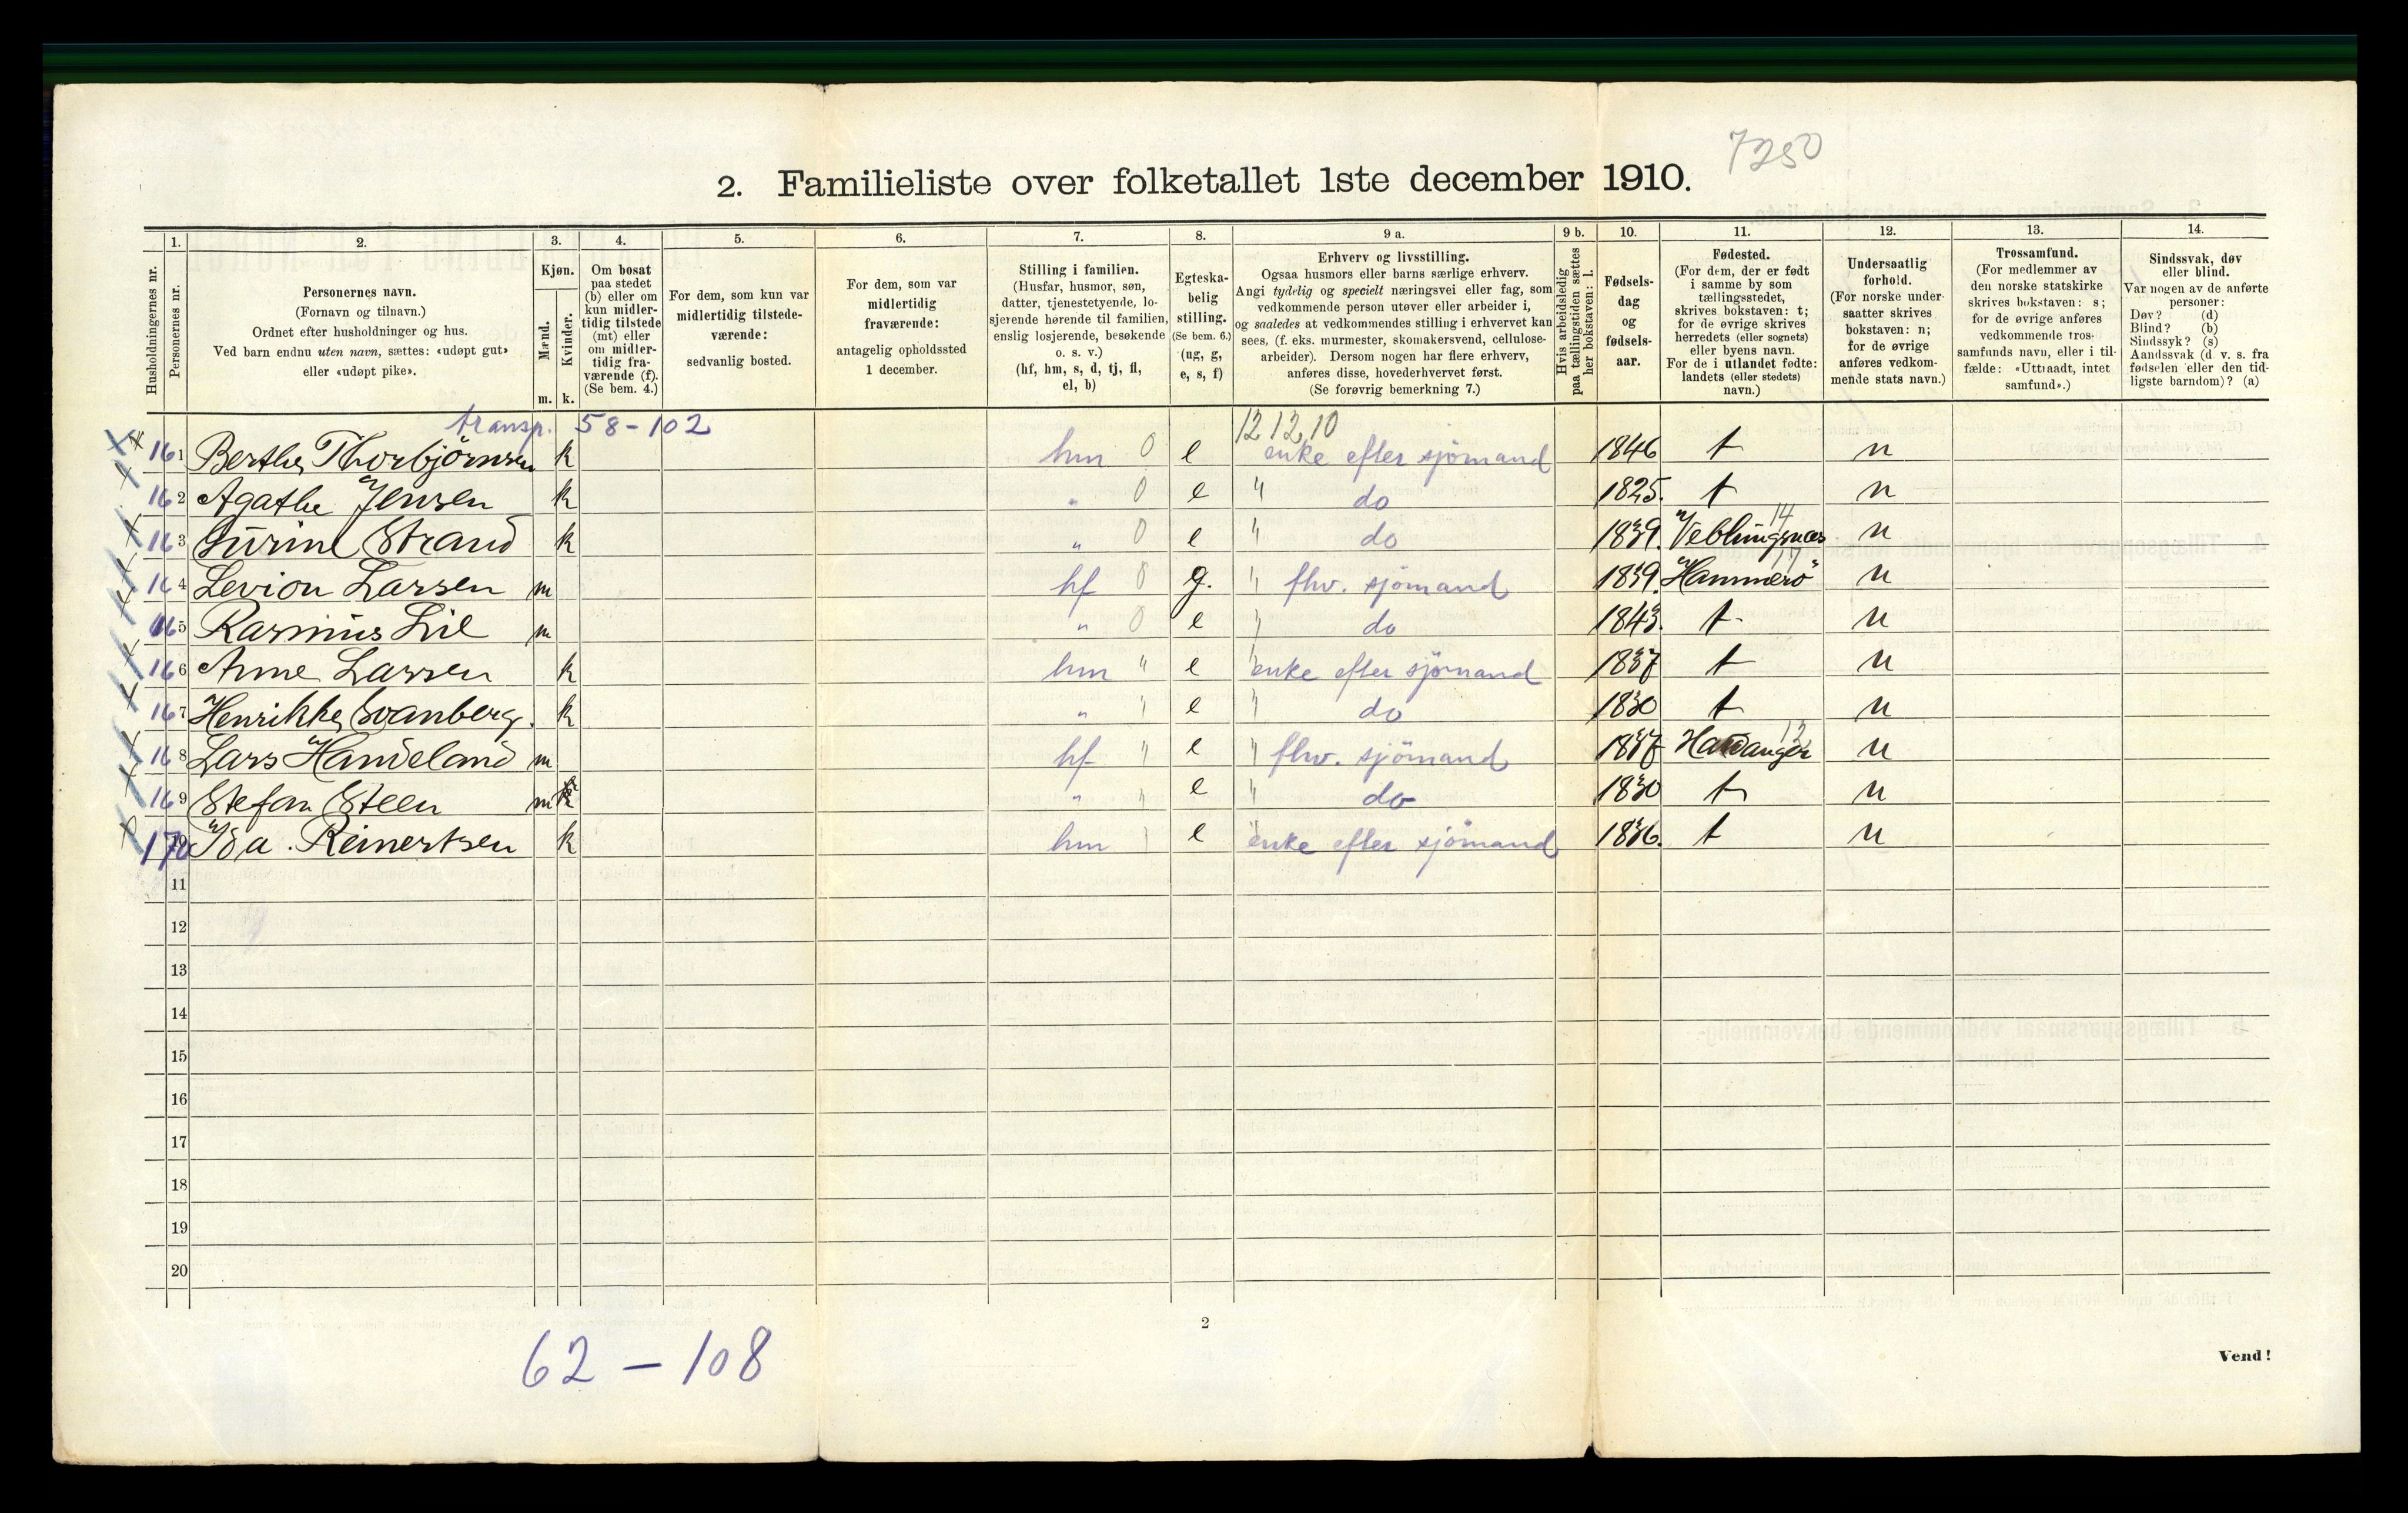 7250
2. Familieliste over folketallet 1ste december 1910.
Husholdningernes nr.
1.
Personernes nr.
2.
Personernes navn.
(Fornavn og tilnavn.)
Ordnet efter husholdninger og hus.
Ved barn endnu uten navn, sættes: «udøpt gut»
eller «udøpt pike».
3.
Kjøn.
Mænd.
Kvinder.
m. k.
4.
Om bosat
paa stedet
(b) eller om
kun midler-
tidig tilstede
(mt) eller
om midler-
tidig fra-
værende (f).
(Se bem. 4.)
5.
For dem, som kun var
midlertidig tilstede-
værende:
sedvanlig bosted.
6.
For dem, som var
midlertidig
fraværende:
antagelig opholdssted
1 december.
7.
Stilling i familien.
(Husfar, husmor, søn,
datter, tjenestetyende, lo-
sjerende hørende til familien,
enslig losjerende, besøkende
o. s. v.)
(hf, hm, s, d, tj, fl,
el, b)
8.
Egteska-
belig
stilling.
(Se bem. 6.)
(ug, g,
e, s, f)
9 a.
Erhverv og livsstilling.
Ogsaa husmors eller barns særlige erhverv.
Angi tydelig og specielt næringsvei eller fag, som
vedkommende person utøver eller arbeider i,
og saaledes at vedkommendes stilling i erhvervet kan
sees, (f. eks. murmester, skomakersvend, cellulose-
arbeider). Dersom nogen har flere erhverv,
anføres disse, hovederhvervet først.
(Se forøvrig bemerkning 7.)
9 b.
Hvis arbeidsledig
paa tællingstiden sættes
her bokstaven: l.
10.
Fødsels-
dag
og
fødsels-
aar.
11.
Fødested.
(For dem, der er født
i samme by som
tællingsstedet,
skrives bokstaven: t;
for de øvrige skrives
herredets (eller sognets)
eller byens navn.
For de i utlandet fødte:
landets (eller stedets)
navn.)
12.
Undersaatlig
forhold.
(For norske under-
saatter skrives
bokstaven: n;
for de øvrige
anføres vedkom-
mende stats navn.)
13.
Trossamfund.
(For medlemmer av
den norske statskirke
skrives bokstaven: s;
for de øvrige anføres
vedkommende tros-
samfunds navn, eller i til-
fælde: «Uttraadt, intet
samfund».)
14.
Sindssvak, døv
eller blind.
Var nogen av de anførte
personer:
Døv? (d)
Blind? (b)
Sindssyk? (s)
Aandssvak (d v. s. fra
fødselen eller den tid-
ligste barndom)? (a)
transp. 58-102 12 12 10
16 1 Berthe Thorbjörnsen k hm 0 e enke efter sjömand 1846 t n
16 2 Agathe Jensen k " 0 e " do 1825. t n
16 3 Gurine Strand k " 0 e " do 1839. Veblungsnæs 14 n
16 4 Levion Larsen m hf 0 g. " fhv. sjömand 1839. Hammerö 17 n
16 5 Rasmus Lie m " 0 e " do 1843. t n
16 6 Anne Larsen k hm " e " enke efter sjömand 1837 t n
16 7 Henrikke Svanberg. k " " e " do 1830 t n
16 8 Lars Handeland m hf " e " fhv. sjömand 1837 Hardanger 12 n
16 9 Stefan Steen m k " " e " do 1830 t n
170 Ida. Reinertsen k hm " e " enke efter sjömand 1836. t n
11
12
13
14
15
16
17
18
19
20
2
62 - 108
Vend!